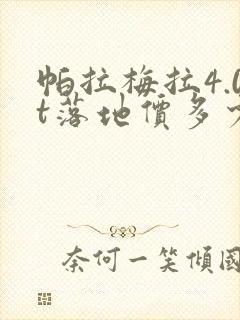 帕拉梅拉4.0
t落地價多
奈何一笑傾國